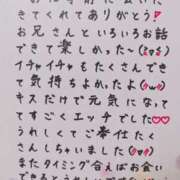 きてくれてありがとう!
お兄さんといろいろお話
できて楽しかった〜(≧▽≦)
イチャイチャもたくさんできて
気持ちよかったよ(∪ω∪)
キスだけで元気になって
てすごくエッチでした♡♡
うれしくてご奉仕たく
さんしちゃいました(≧▽≦)
またタイミング合えばお会い